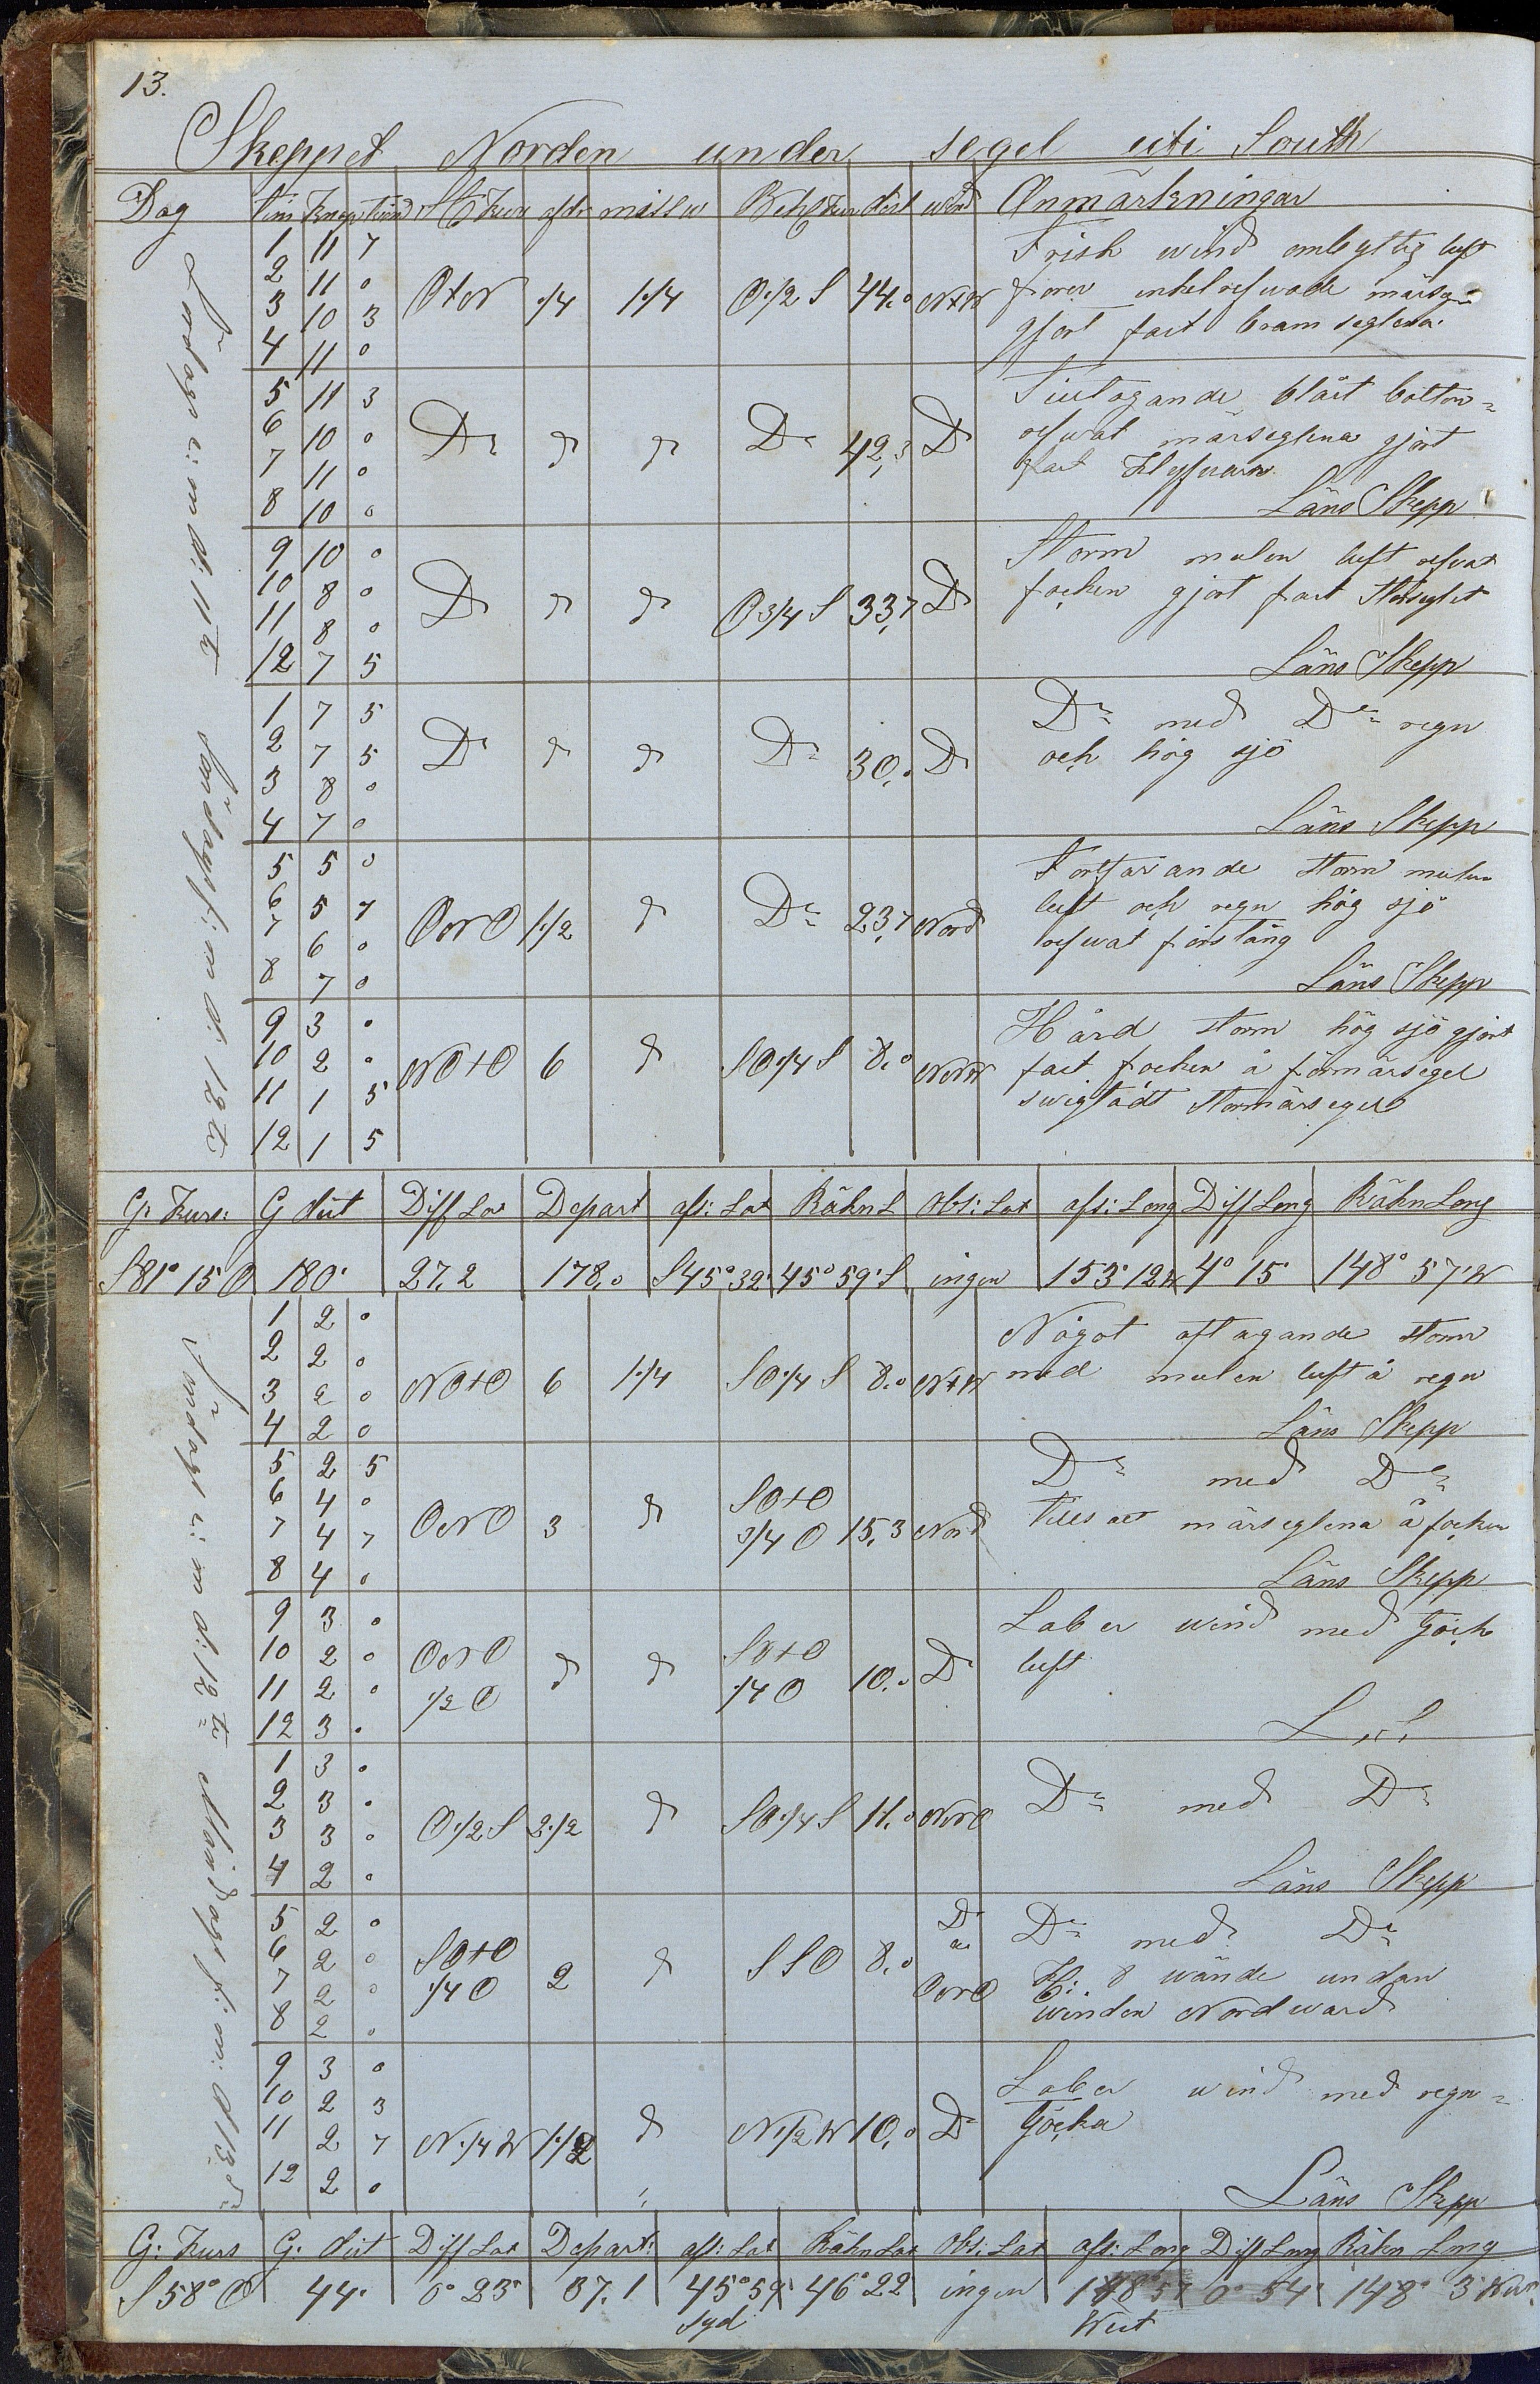 13.
Skeppet Norden under segel uti South
Dag Tim Knop St Kurs afdr missw Beh Kurs dist wind Anmärkningar
Lördags e: m d: 11te
1 11 7
2 11 0
3 10 3
4 11 0
OtN 1/4 1 1/4 O 1/2 S 44,0 NtW
Frisk wind ombytlig luft
förer enkelrefwade märsegel
gjort fast bramseglena.
5 11 3
6 10 0
7 11 0
8 10 0
Do do do Do 42,3 Do
Tiltagande blåst botten=
refwat märseglena gjort
fast Klyfwarn
Läns Skepp
9 10 0
10 8 0
11 8 0
12 7 5
Do do do O 3/4 S 33,7 Do
Storm mulen luft refvat
focken gjort fast Storseglet
Läns Skepp
Söndags f: m d: 12te
1 7 5
2 7 5
3 8 0
4 7 0
Do do do Do 30,0 Do
Do med Do regn
och hög sjö
Läns Skepp
5 5 0
6 5 7
7 6 0
8 7 0
ONO 1 1/2 do Do 23,7 Nord
Fortfarande storm mulen
luft och regn hög sjö
refwat förstäng
Läns Skepp
9 3 0
10 2 0
11 1 5
12 1 5
NOtO 6 do SO 1/4 S 8,0 NNW
Hård storm hög sjö gjort
fast focken å förmärsegel
Stormärsegel
G: Kurs: G dist Diff Lat Depart af: Lat Räkn L Obs: Lat af: Long Diff Long Räkn Long
S 81° 15 O 180' 27,2 178,0 S 45° 32' 45° 59' S ingen 153° 12 W 4° 15' 148° 57' W
Söndags e: m d: 12te
1 2 0
2 2 0
3 2 0
4 2 0
NOtO 6 1 1/4 SO 1/4 S 8,0 NtW
Något aftagande storm
med mulen luft å regn
Läns Skepp
5 2 5
6 4 0
7 4 7
8 4 0
ONO 3 do SOtO 3/4 O 15,3 Nord
Do med Do
Tillsatt märseglena å focken
Läns Skepp
9 3 0
10 2 0
11 2 0
12 3 0
ONO 1/2 O do do SOtO 1/4 O 10,0 Do
Laber wind med töck
luft
L S
Måndags f: m: d 13de
1 3 0
2 3 0
3 3 0
4 2 0
O 1/2 S 2 1/2 do SO 1/4 S 11,0 NNO
Do med Do
Läns Skepp
5 2 0
6 2 0
7 2 0
8 2 0
SOtO 1/4 O 2 do SSO 8,0 Do ONO
Do med Do
Kl: 8 wände undan
winden Nordward
9 3 0
10 2 3
11 2 7
12 2 0
N 1/4 W 1 1/2 do N 1/2 W 10,0 Do
Laber wind med regn=
töcka
Läns Skepp
G: Kurs G. dist Diff Lat Depart: af: Lat Räkn Lat Obs: Lat af: Long Diff Long Räkn Long
S 58° O 44' 0° 23' 37,1 45° 59' 46° 22 ingen 148° 57 0° 54' 148° 3'
Syd West